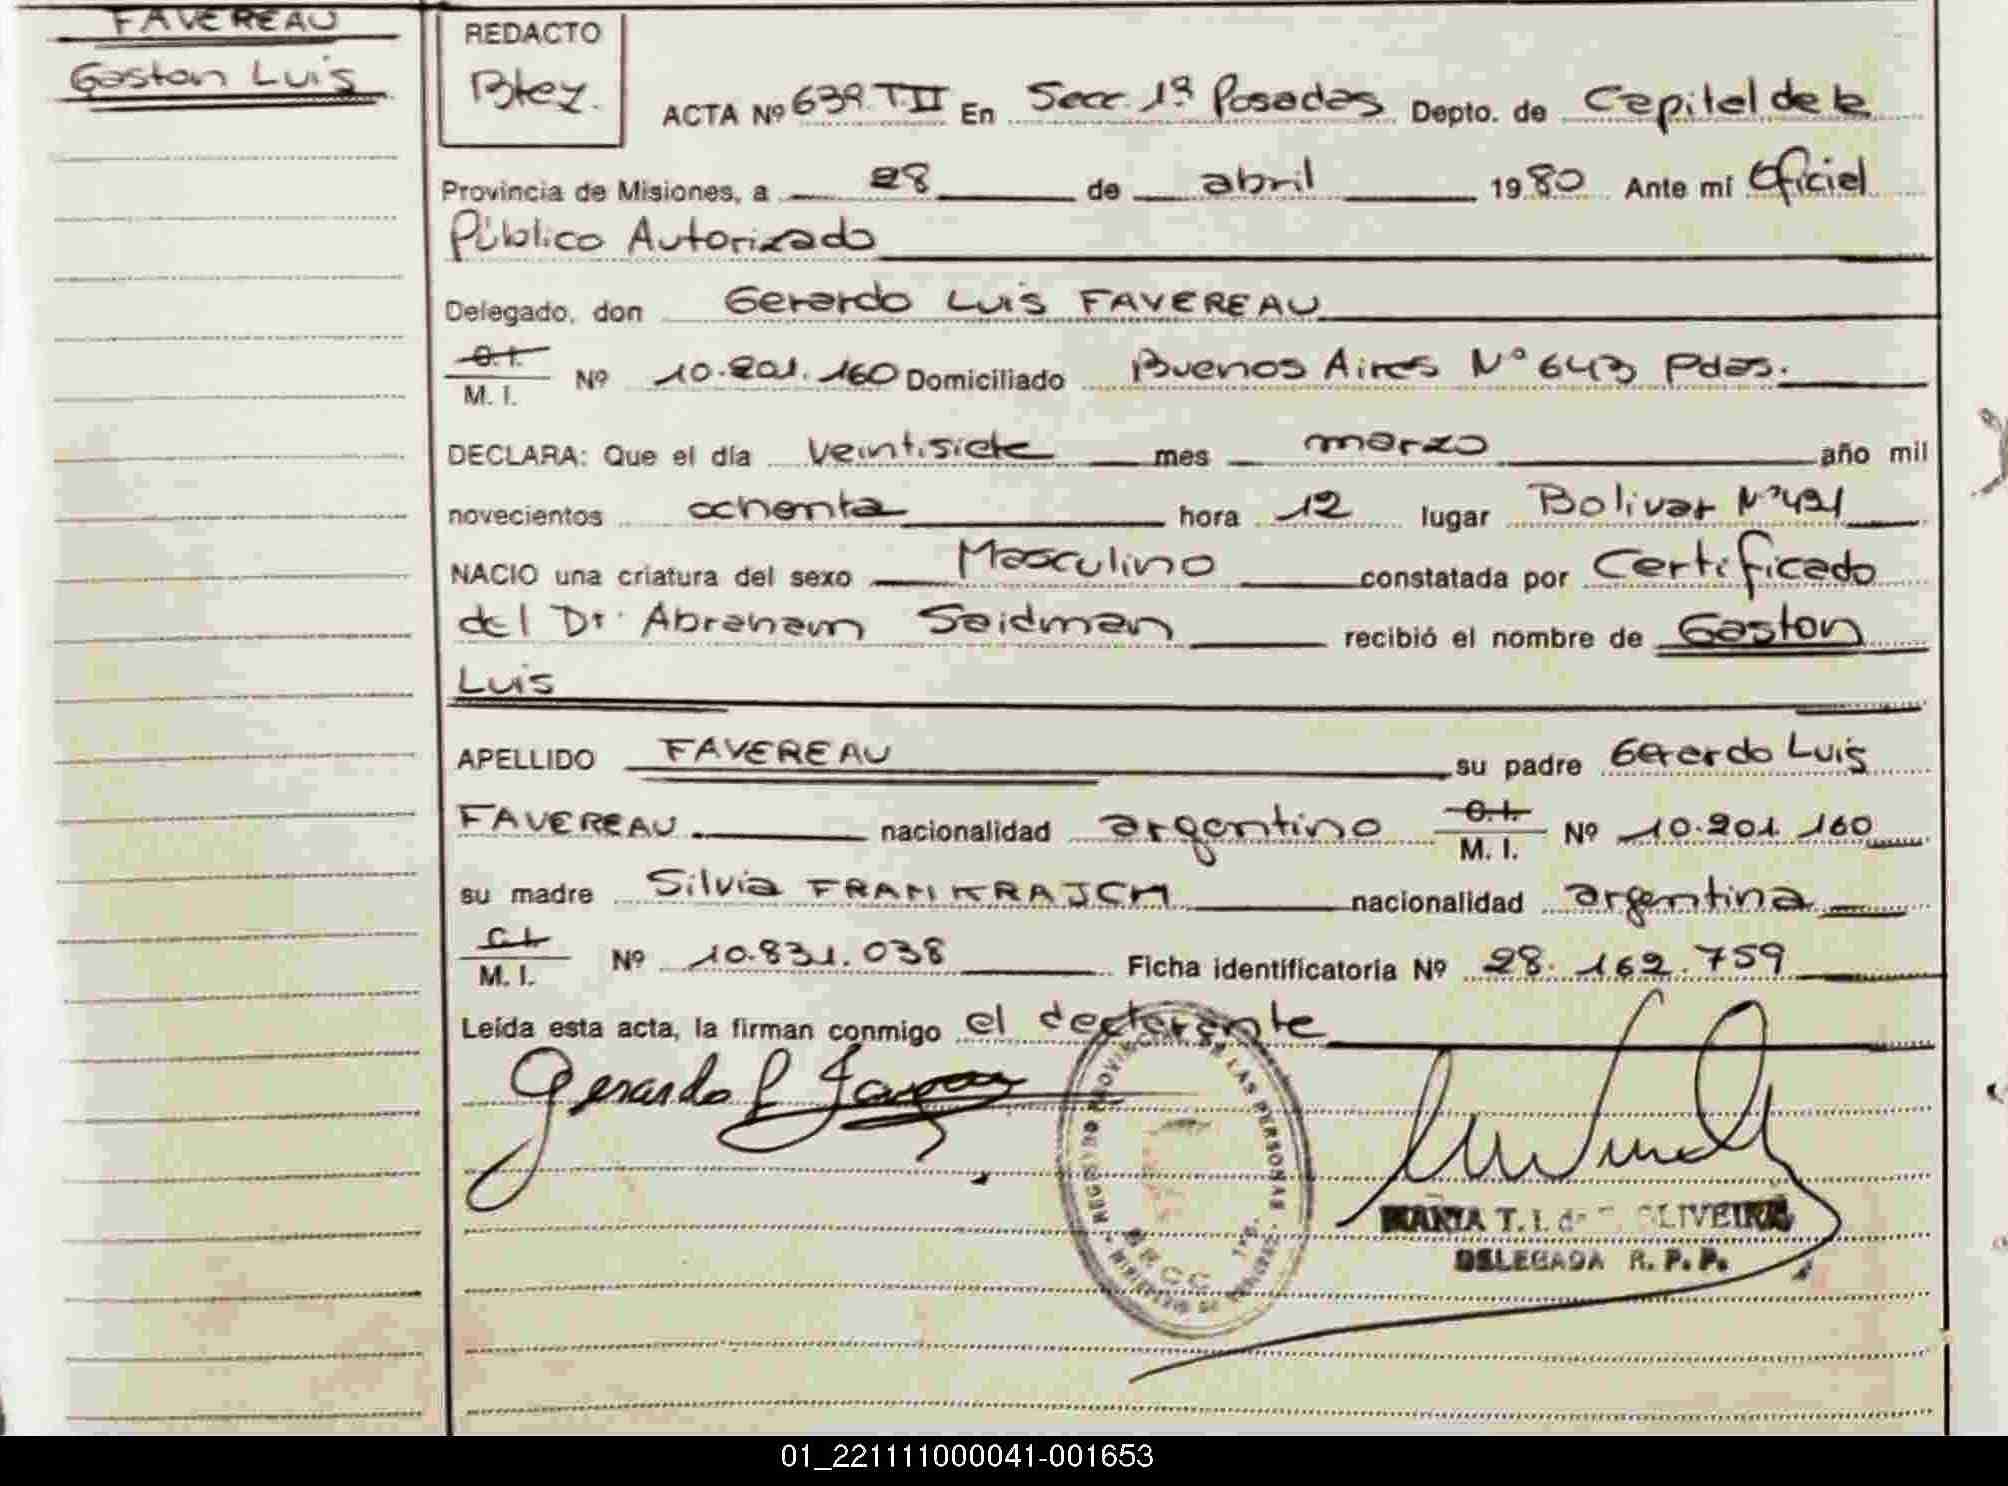 FAVEREAU
Gaston Luis
REDACTO
Btez.
ACTA Nº 639. T. II En Secc. 1ª Posadas Depto. de Capital de la
Provincia de Misiones, a 28 de abril 1980 Ante mí Oficial
Público Autorizado
Delegado, don Gerardo Luis FAVEREAU
C. I.
M. I. Nº 10.201.160 Domiciliado Buenos Aires Nº 643 Pdas.
DECLARA: Que el día veintisiete mes marzo año mil
novecientos ochenta hora 12 lugar Bolivar Nº 491
NACIO una criatura del sexo Masculino constatada por Certificado
del Dr. Abraham Saidman recibió el nombre de Gaston
Luis
APELLIDO FAVEREAU su padre Gerardo Luis
FAVEREAU nacionalidad argentino C. I.
M. I. Nº 10.201.160
su madre Silvia FRANKRAJCH nacionalidad argentina
C. I.
M. I. Nº 10.831.038 Ficha identificatoria Nº 28.162.759
Leída esta acta, la firman conmigo el declarante
Gerardo L
REGISTRO PROVINCIAL DE LAS PERSONAS
MARIA T. I. de OLIVEIRA
DELEGADA R. P. P.
01_221111000041-001653